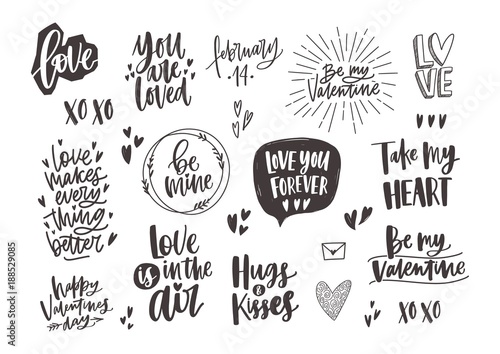 love
you
are
loved
february
.14.
Be my
Valentine
LOVE
XO XO
love
makes
every
thing
better
be
mine
LOVE YOU
FOREVER
Take my
HEART
happy
Valentines
day
Love
is in the
air
Hugs
&
Kisses
Be my
Valentine
XO XO
Adobe Stock | #188529085